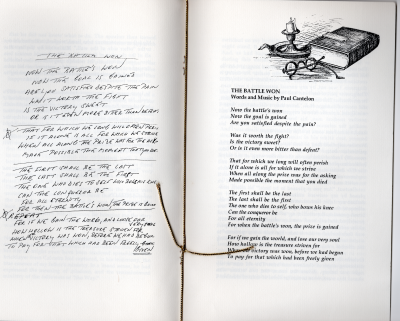 THE BATTLE WON
NOW THE BATTLE'S WON,
NOW THE GOAL IS GAINED
ARE YOU SATISFIED DESPITE THE PAIN
WAS IT WORTH THE FIGHT
IS THE VICTORY SWEET
OR IS IT EVEN MORE BITTER THEN DEFEAT
THAT FOR WHICH WE LONG WILL OFTEN PERISH
IF IT ALONE IS ALL FOR WHICH WE STRIVE
WHEN ALL ALONG THE PRIZE WAS FOR THE
MADE POSSIBLE THE MOMENT THAT YOU DIED
THE FIRST SHALL BE THE LAST
THE LAST SHALL BE THE FIRST
THE ONE WHO DIES TO SELF
CAN THE CONQUEROR BE
FOR ALL ETERNITY
FOR THEN THE BATTLE'S WON, THE PRIZE IS GAINED
REPEAT
FOR IF WE GAIN THE WORLD, AND LOSE OUR
HOW HOLLOW IS THE TREASURE STRIVEN FOR
WHEN VICTORY WAS WON, BEFORE WE HAD BEGUN
TO PAY FOR THAT WHICH HAD BEEN FREELY
GIVEN
THE BATTLE WON
Words and Music by Paul Cantelon
Now the battle's won
Now the goal is gained
Are you satisfied despite the pain?
Was it worth the fight?
Is the victory sweet?
Or is it even more bitter than defeat?
That for which we long will often perish
If it alone is all for which we strive
When all along the prize was for the asking
Made possible the moment that you died
The first shall be the last
The last shall be the first
The one who dies to self, who bows his knee
Can the conqueror be
For all eternity
For when the battle's won, the prize is gained
For if we gain the world, and lose our very soul
How hollow is the treasure striven for
When victory was won, before we had begun
To pay for that which had been freely given